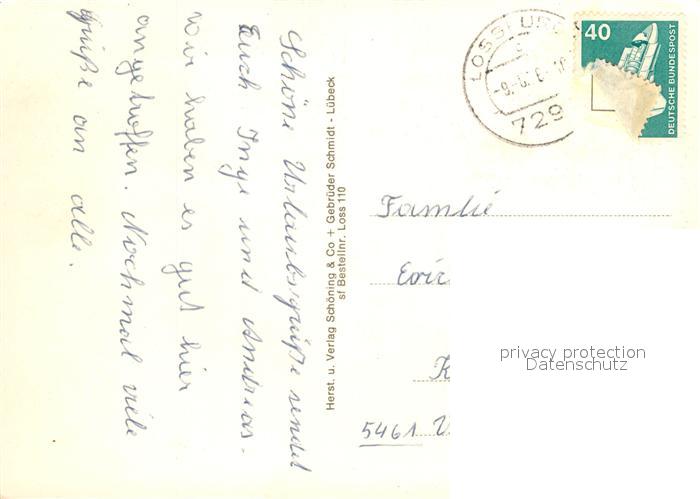 Schöne Urlaubsgrüße sendet
Euch Inge und Andreas.
Wir haben es gut hier
angetroffen. Nochmal viele
Grüße an alle.
Herst. u. Verlag Schöning & Co + Gebrüder Schmidt - Lübeck
sf Bestellnr. Loss 110
LOSSBU
729
40
DEUTSCHE BUNDESPOST
Familie
Eric
K
5461 V
privacy protection
Datenschutz